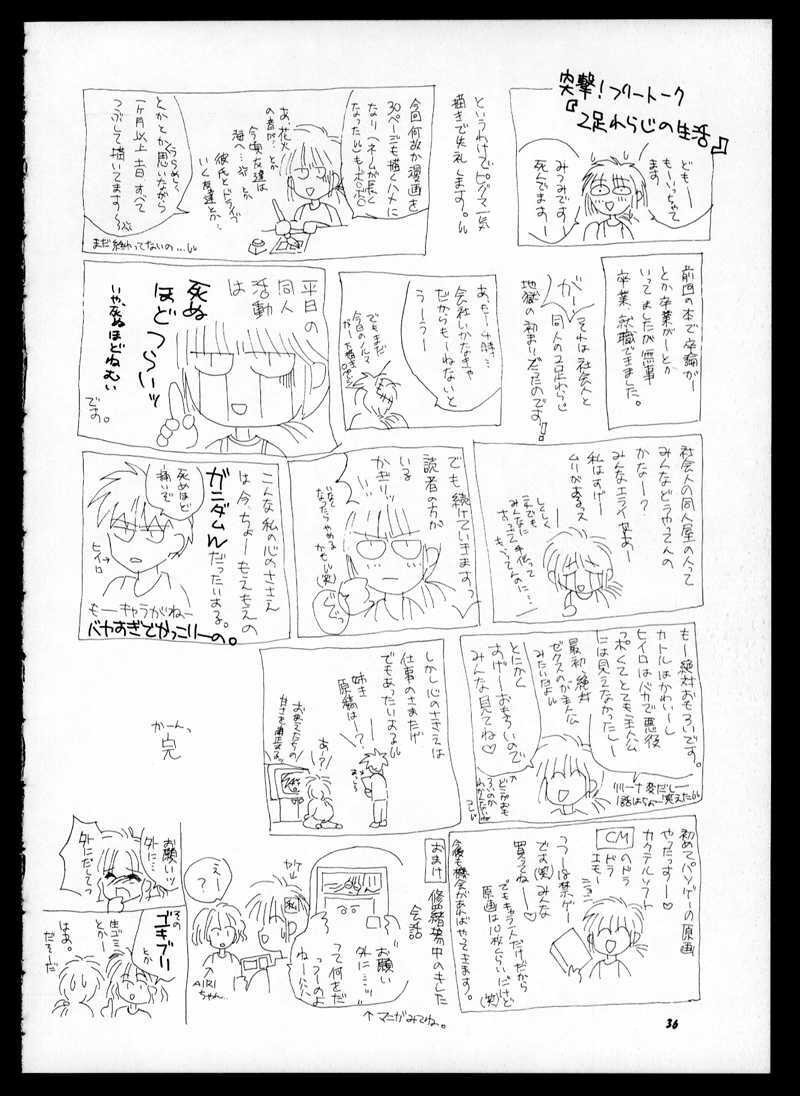 突撃！フリートーク
『2足わらじの生活』
ども——
もーいっちゃて
ます
みつみです
死んでまずー
というわけでピンマー気
描きで失礼します。
今回何故か漫画を
30ページも描くハメに
なり（ネームが長く
なった）もボロボロ
あ、花火
の音が…とか
今頃友達は
海へ…とか
彼氏とドライブ
いく友達とか…
うらめしく
とかとか思いながら
一ヶ月以上土日すべて
つぶして描いてます〜
まだ終わってないの…
前回の本で卒論が—
とか卒業が—とか
いってましたが無事
卒業、就職できました。
がーっ
それは社会人と
同人の2足わらじ
地獄の初まりだったのです！
あ、も—4時…
会社いかなきゃ
だからも—ねないと
う—う—
でもまだ
今日のノルマ
が—
平日の
同人
活動
は
死ぬ
ほど
つらいーッ
いや、死ぬほどねむい
です。
社会人の同人屋の人って
みんなどうやってんの
かな—？
みんなエライなあ—
私はすげー
ムリがあるっス
しくしく
これでも
みんなに
手伝って
もらってんのに…
でも続けていきますっ
読者の方が
いる
かぎりッ
いなく
なったらやめる
かもしん(笑)
ぐぐっ
こんな私の心のささえ
は今ちょーもえもえの
ガンダムW
だったいよる。
死ぬほど
痛いぞ
ヒイロ
も—キャラがいね—
バヤすぎでかっこりーの。
も—絶対おもろいです。
カトルはかわい—し
ヒイロはバカで悪役
っぽくてとても主人公
には見えなかったし—
最初絶対
ゼクスのが主人公
みたいだよん
とにかく
すげ—おもろいので
みんな見てね♡
リリーナ変だし—
1話はちょ—笑えた
どこがおも
ろいのか
わかんないね
しかし心のささえは
仕事のさまたげ
でもあったりする
姉き
原稿は—？
あ！？
初めてパソゲーの原画
やったっす—♡
カクテルソフト
CM
のドラ
ドラ
エモーション
うつ—は禁ゲー
です(笑)みんな
買ってね—♡
でもキャラ一人だけだから
原画は10枚くらいだけど
(笑)
今後も機会があればやってきます。
おまけ
修羅場中のきした
会話
お願い
外に…ッ
って何をだ
っつーのよ
ね—
↑マニがみてね。
私
え—
？
↑
AIRI
ちゃん…
お願いッ
外に…
外にだしてっ
その
ゴキブリ—
とか
生ゴミ
とか—
はあ。
だそーだ
か—んっ
完
36